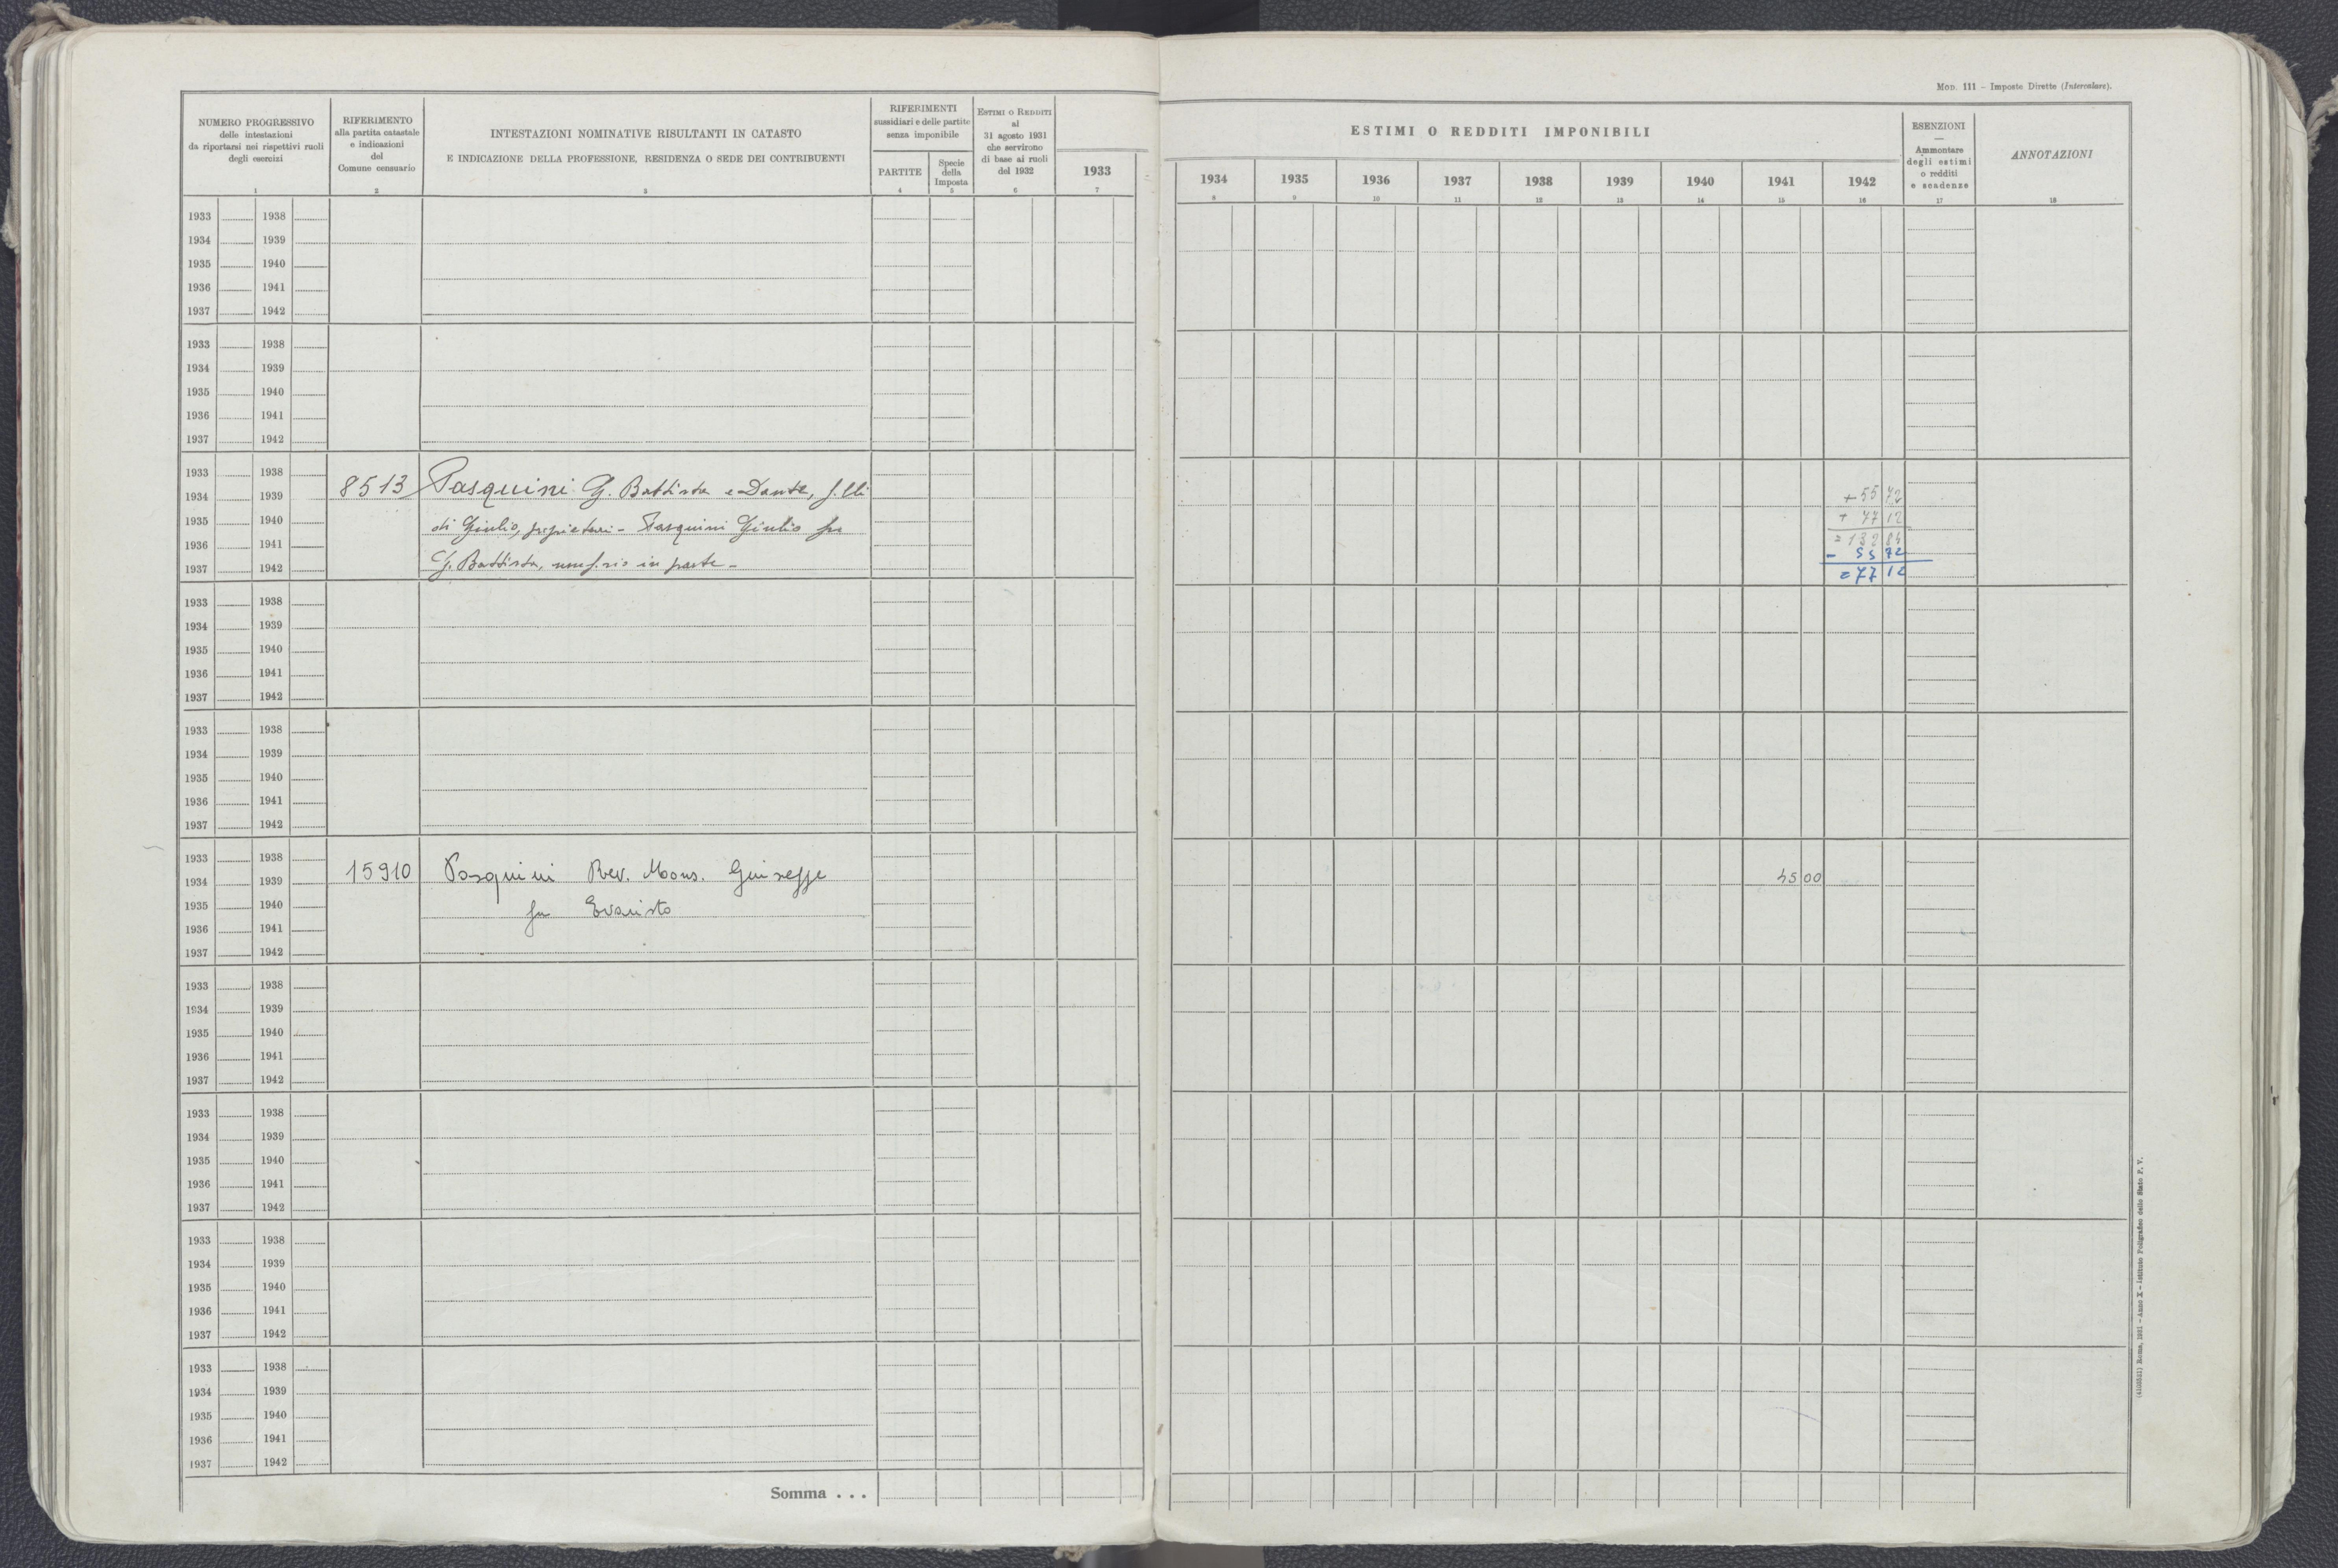 Mod. 111 - Imposte Dirette (Intercalare).
NUMERO PROGRESSIVO
delle intestazioni
da riportarsi nei rispettivi ruoli
degli esercizi
1
RIFERIMENTO
alla partita catastale
e indicazioni
del
Comune censuario
2
INTESTAZIONI NOMINATIVE RISULTANTI IN CATASTO
E INDICAZIONE DELLA PROFESSIONE, RESIDENZA O SEDE DEI CONTRIBUENTI
3
RIFERIMENTI
sussidiari e delle partite
senza imponibile
PARTITE
4
Specie
della
Imposta
5
Estimi o Redditi
al
31 agosto 1931
che servirono
di base ai ruoli
del 1932
6
1933
7
ESTIMI O REDDITI IMPONIBILI
1934 1935 1936 1937 1938 1939 1940 1941 1942
8 9 10 11 12 13 14 15 16
ESENZIONI
Ammontare
degli estimi
o redditi
e scadenze
17
ANNOTAZIONI
18
1933 1938
1934 1939
1935 1940
1936 1941
1937 1942
1933 1938
1934 1939
1935 1940
1936 1941
1937 1942
1933 1938
1934 1939 8513 Pasquini G. Battista e Dante, f.lli + 55 72
1935 1940 di Giulio, proprietari - Pasquini Giulio fu + 77 12
1936 1941 = 132 84
1937 1942 G. Battista, usuf.rio in parte - - 55 72
= 77 12
1933 1938
1934 1939
1935 1940
1936 1941
1937 1942
1933 1938
1934 1939
1935 1940
1936 1941
1937 1942
1933 1938
1934 1939 15910 Pasquini Rev. Mons. Giuseppe 45 00
1935 1940 fu Evaristo
1936 1941
1937 1942
1933 1938
1934 1939
1935 1940
1936 1941
1937 1942
1933 1938
1934 1939
1935 1940
1936 1941
1937 1942
1933 1938
1934 1939
1935 1940
1936 1941
1937 1942
1933 1938
1934 1939
1935 1940
1936 1941
1937 1942
Somma . . .
Roma, 1931 - Anno X - Istituto Poligrafico dello Stato P. V.